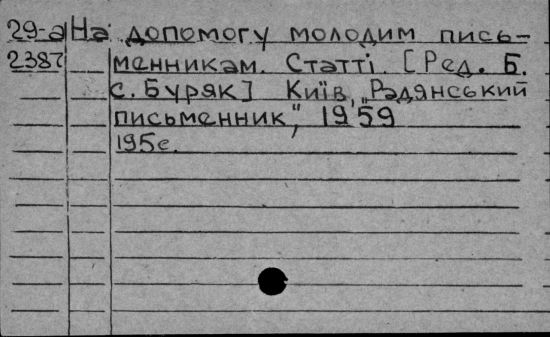 29-а На допомогу молодим пись-
2387 менникам. Статті. [Ред. Б.
с. Буряк] Київ, „Радянський
письменник", 1959
195с.